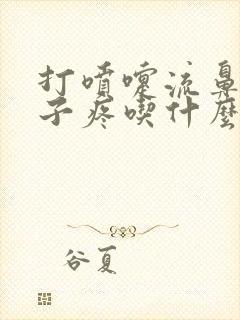 打噴嚏流鼻
子疼喫什麼
谷夏